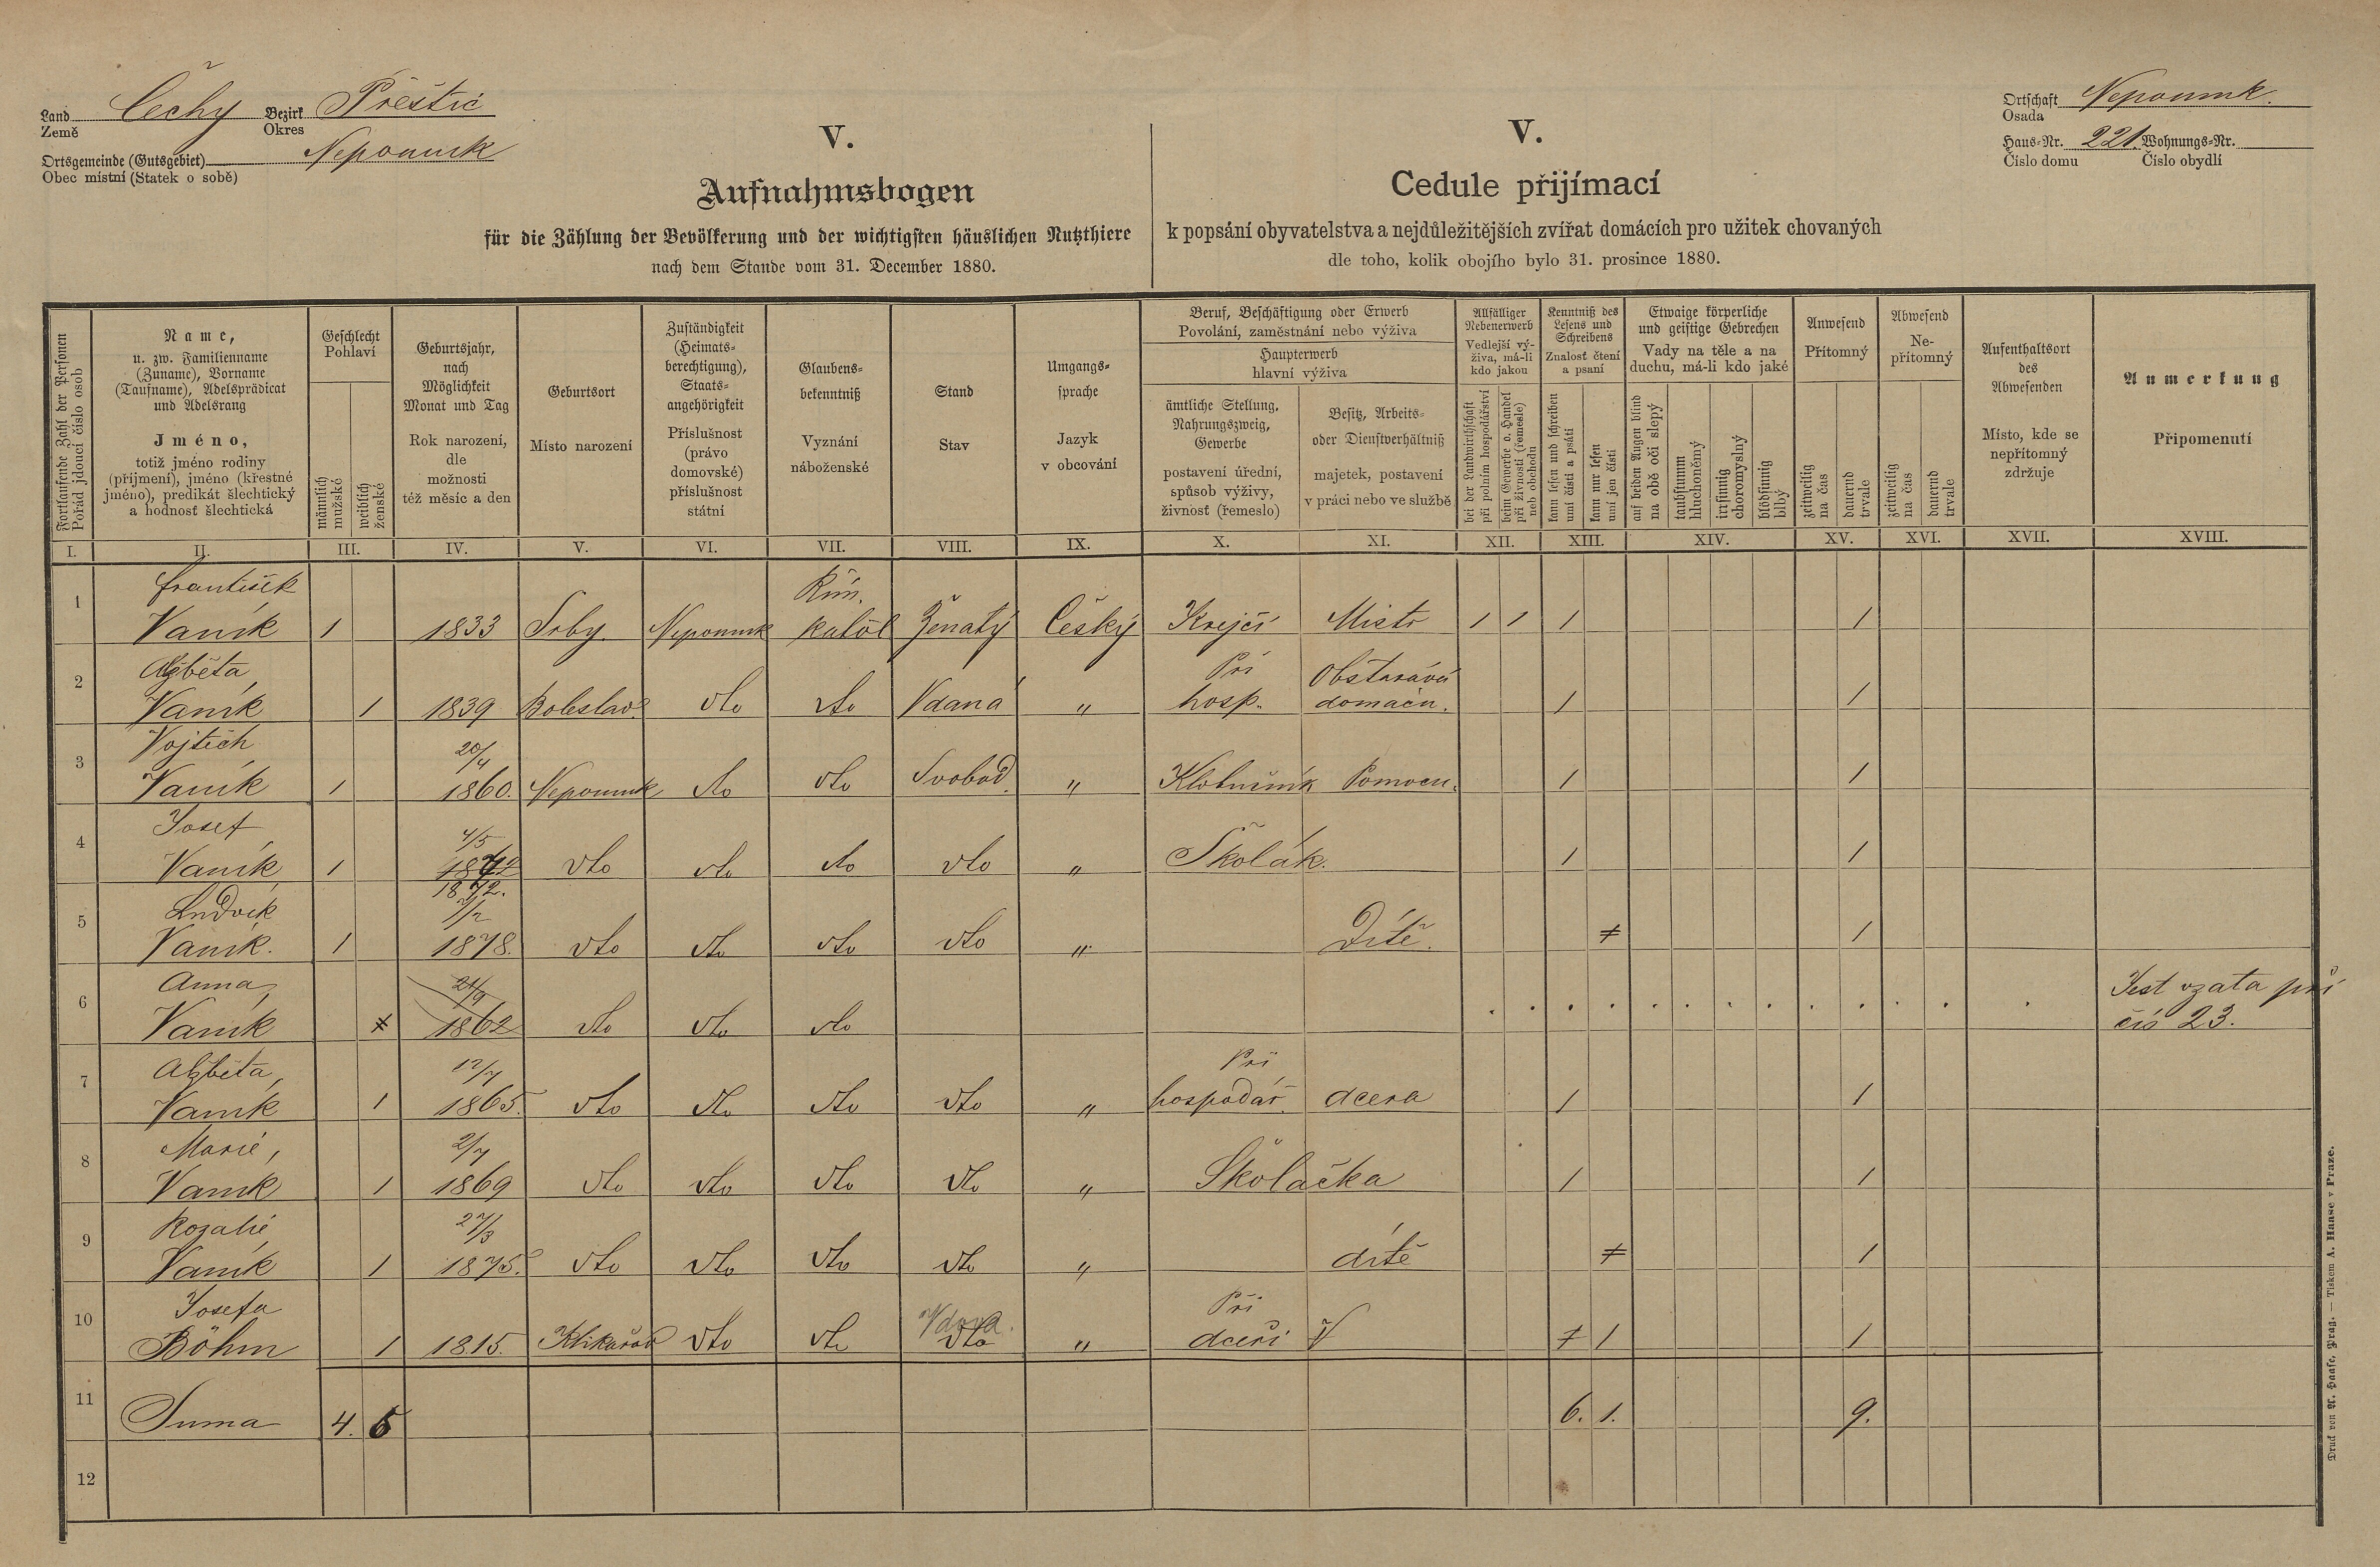 Land Země Čechy Bezirk Okres Přeštic
Ortsgemeinde (Gutsgebiet) Nepomuk
Obec místní (Statek o sobě)
V.
Aufnahmsbogen
für die Zählung der Bevölkerung und der wichtigsten häuslichen Nutzthiere
nach dem Stande vom 31. December 1880.
V.
Cedule přijímací
k popsání obyvatelstva a nejdůležitějších zvířat domácích pro užitek chovaných
dle toho, kolik obojího bylo 31. prosince 1880.
Ortschaft Nepomuk.
Osada
Haus-Nr. 221. Wohnungs-Nr.
Číslo domu Číslo obydlí
Fortlaufende Zahl der Personen
Pořád jdoucí číslo osob
Name,
u. zw. Familienname
(Zuname), Vorname
(Taufname), Adelsprädicat
und Adelsrang
Jméno,
totiž jméno rodiny
(příjmení), jméno (křestné
jméno), predikát šlechtický
a hodnost šlechtická
Geschlecht
Pohlaví
männlich
mužské
weiblich
ženské
Geburtsjahr,
nach
Möglichkeit
Monat und Tag
Rok narození,
dle
možnosti
též měsíc a den
Geburtsort
Místo narození
Zuständigkeit
(Heimats-
berechtigung),
Staats-
angehörigkeit
Příslušnost
(právo
domovské)
příslušnost
státní
Glaubens-
bekenntniß
Vyznání
náboženské
Stand
Stav
Umgangs-
sprache
Jazyk
v obcování
Beruf, Beschäftigung oder Erwerb
Povolání, zaměstnání nebo výživa
Haupterwerb
hlavní výživa
ämtliche Stellung,
Nahrungszweig,
Gewerbe
postavení úřední,
spůsob výživy,
živnosť (řemeslo)
Besitz, Arbeits-
oder Dienstverhältniß
majetek, postavení
v práci nebo ve službě
Allfälliger
Nebenerwerb
Vedlejší vý-
živa, má-li
kdo jakou
bei der Landwirthschaft
při polním hospodářství
beim Gewerbe o. Handel
při živnosti (řemesle)
neb obchodu
Kenntniß des
Lesens und
Schreibens
Znalosť čtení
a psaní
kann lesen und schreiben
umí čísti a psáti
kann nur lesen
umí jen čísti
Etwaige körperliche
und geistige Gebrechen
Vady na těle a na
duchu, má-li kdo jaké
auf beiden Augen blind
na obě oči slepý
taubstumm
hluchoněmý
irrsinnig
choromyslný
blödsinnig
blbý
Anwesend
Přítomný
zeitweilig
na čas
dauernd
trvale
Abwesend
Ne-
přítomný
zeitweilig
na čas
dauernd
trvale
Aufenthaltsort
des
Abwesenden
Místo, kde se
nepřítomný
zdržuje
Anmerkung
Připomenutí
I. II. III. IV. V. VI. VII. VIII. IX. X. XI. XII. XIII. XIV. XV. XVI. XVII. XVIII.
František Řím.
1 Vaník 1 1833 Srby. Nepomuk katol Ženatý Český Krejčí Mistr 1 1 1 1
Alžběta, Při Obstarává
2 Vaník 1 1839 Boleslav. dto dto Vdaná " hosp. domácn. 1 1
Vojtěch 20/4
3 Vaník 1 1860. Nepomuk dto dto Svobod. " Klobučník Pomocn. 1 1
Josef 4/5
4 Vaník 1 dto dto dto dto " Školák. 1 1
1872.
Ludvík
5 Vaník. 1 1878. dto dto dto dto " Dítě. 1
Anna, 21/9 Jest vzata při
6 Vaník 1862 dto dto dto čís 23.
Alžběta, 12/7 Při
7 Vaník 1 1865. dto dto dto dto " hospodář. dcera 1 1
Marie, 2/7
8 Vaník 1 1869 dto dto dto dto " Školačka 1 1
Rozalie, 27/3
9 Vaník 1 1875. dto dto dto dto " dítě 1
Josefa Vdova. Při
10 Böhm 1 1815. dto dto dto " dceři 1 1
11 Suma 4. 5 6. 1. 9.
12
Druck von A. Haase, Prag. — Tiskem A. Haase v Praze.